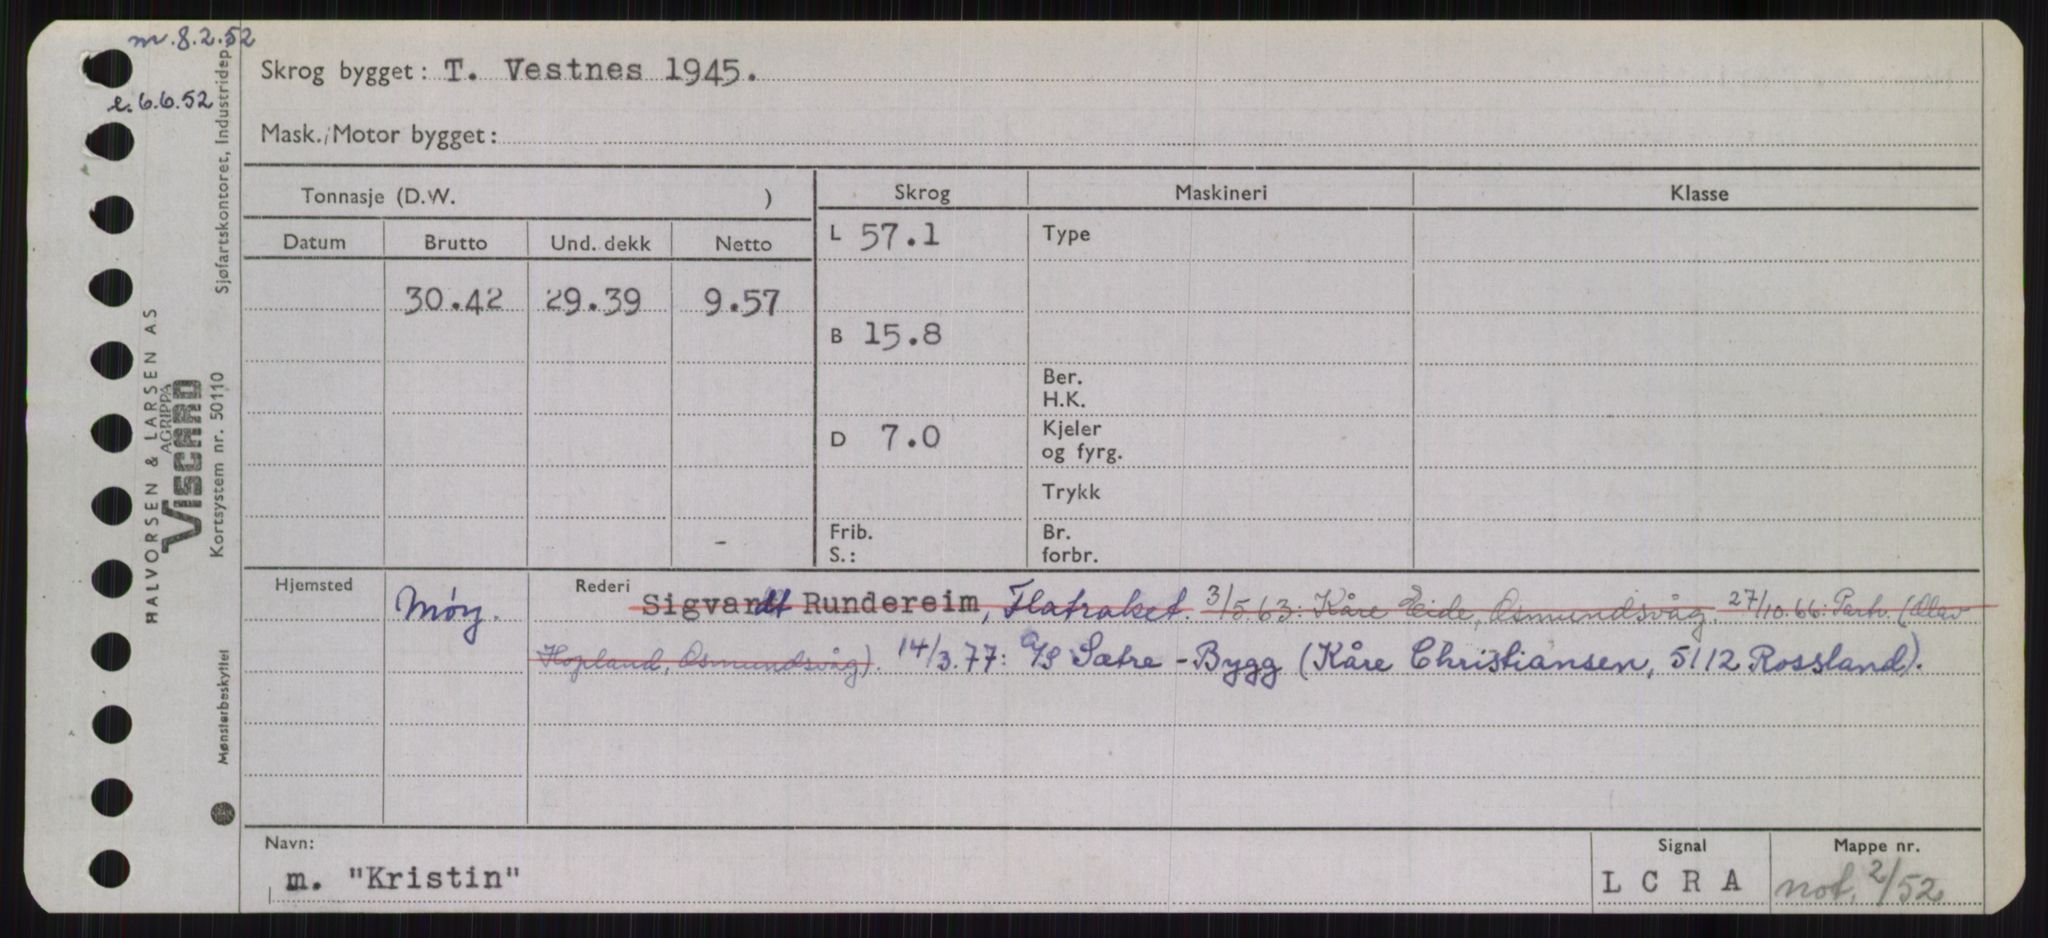 m. 8.2.52
e. 6.6.52
Skrog bygget: T. Vestnes 1945.
Mask./Motor bygget:
Tonnasje (D.W. )
Datum Brutto Und. dekk Netto
30.42 29.39 9.57
-
Skrog Maskineri Klasse
L 57.1 Type
B 15.8
Ber.
H.K.
D 7.0 Kjeler
og fyrg.
Trykk
Frib. Br.
S.: forbr.
Hjemsted Rederi
Sigvardt Rundereim, Flatraket. 3/5.63: Kåre Eide, Osmundsvåg. 27/10.66: Partr. (Olav
Hopland, Osmundsvåg). 14/3.77: A/S Sætre-Bygg (Kåre Christiansen, 5112 Rossland).
Navn: Signal Mappe nr.
m. "Kristin" L C R A not. 2/52
HALVORSEN & LARSEN AS
AGRIPPA
VISCARD
Sjøfartskontoret, Industridep
Kortsystem nr. 50110
Mønsterbeskyttet